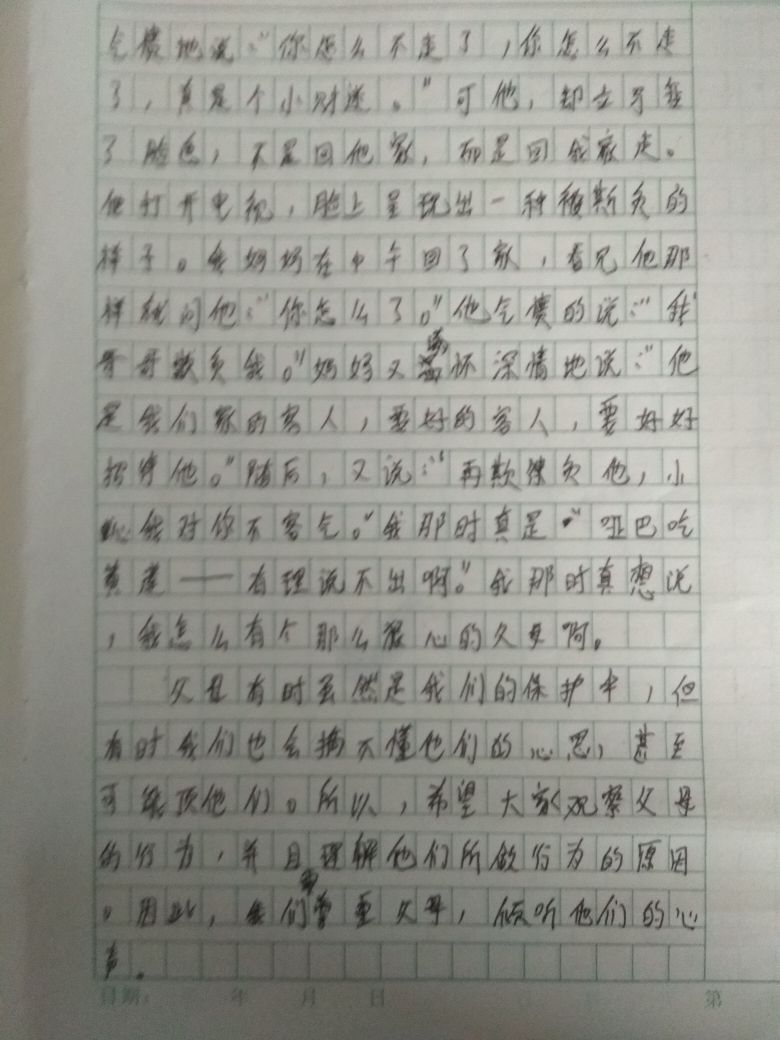 气愤地说:"你怎么不走了,你怎么不走
了,真是个小财迷。"可他,却立牙变
了脸色,不是回他家,而是回我家走。
他打开电视,脸上呈现出一种被欺负的
样子。我妈妈在中午回了家,看见他那
样就问他:"你怎么了。"他气愤的说:"我
哥哥欺负我。"妈妈又满怀深情地说:"他
是我们家的客人,要好的客人,要好好
招待他。"随后,又说:"再欺负他,小
心我对你不客气。"我那时真是"哑巴吃
黄莲——有理说不出啊。"我那时真想说
,我怎么有个那么狠心的父母啊。
父母有时虽然是我们的保护伞,但
有时我们也会搞不懂他们的心思,甚至
可能顶他们。所以,希望大家观察父母
的行为,并且理解他们所做行为的原因
。因此,我们要尊重父母,倾听他们的心
声。
日期: 年 月 日 第